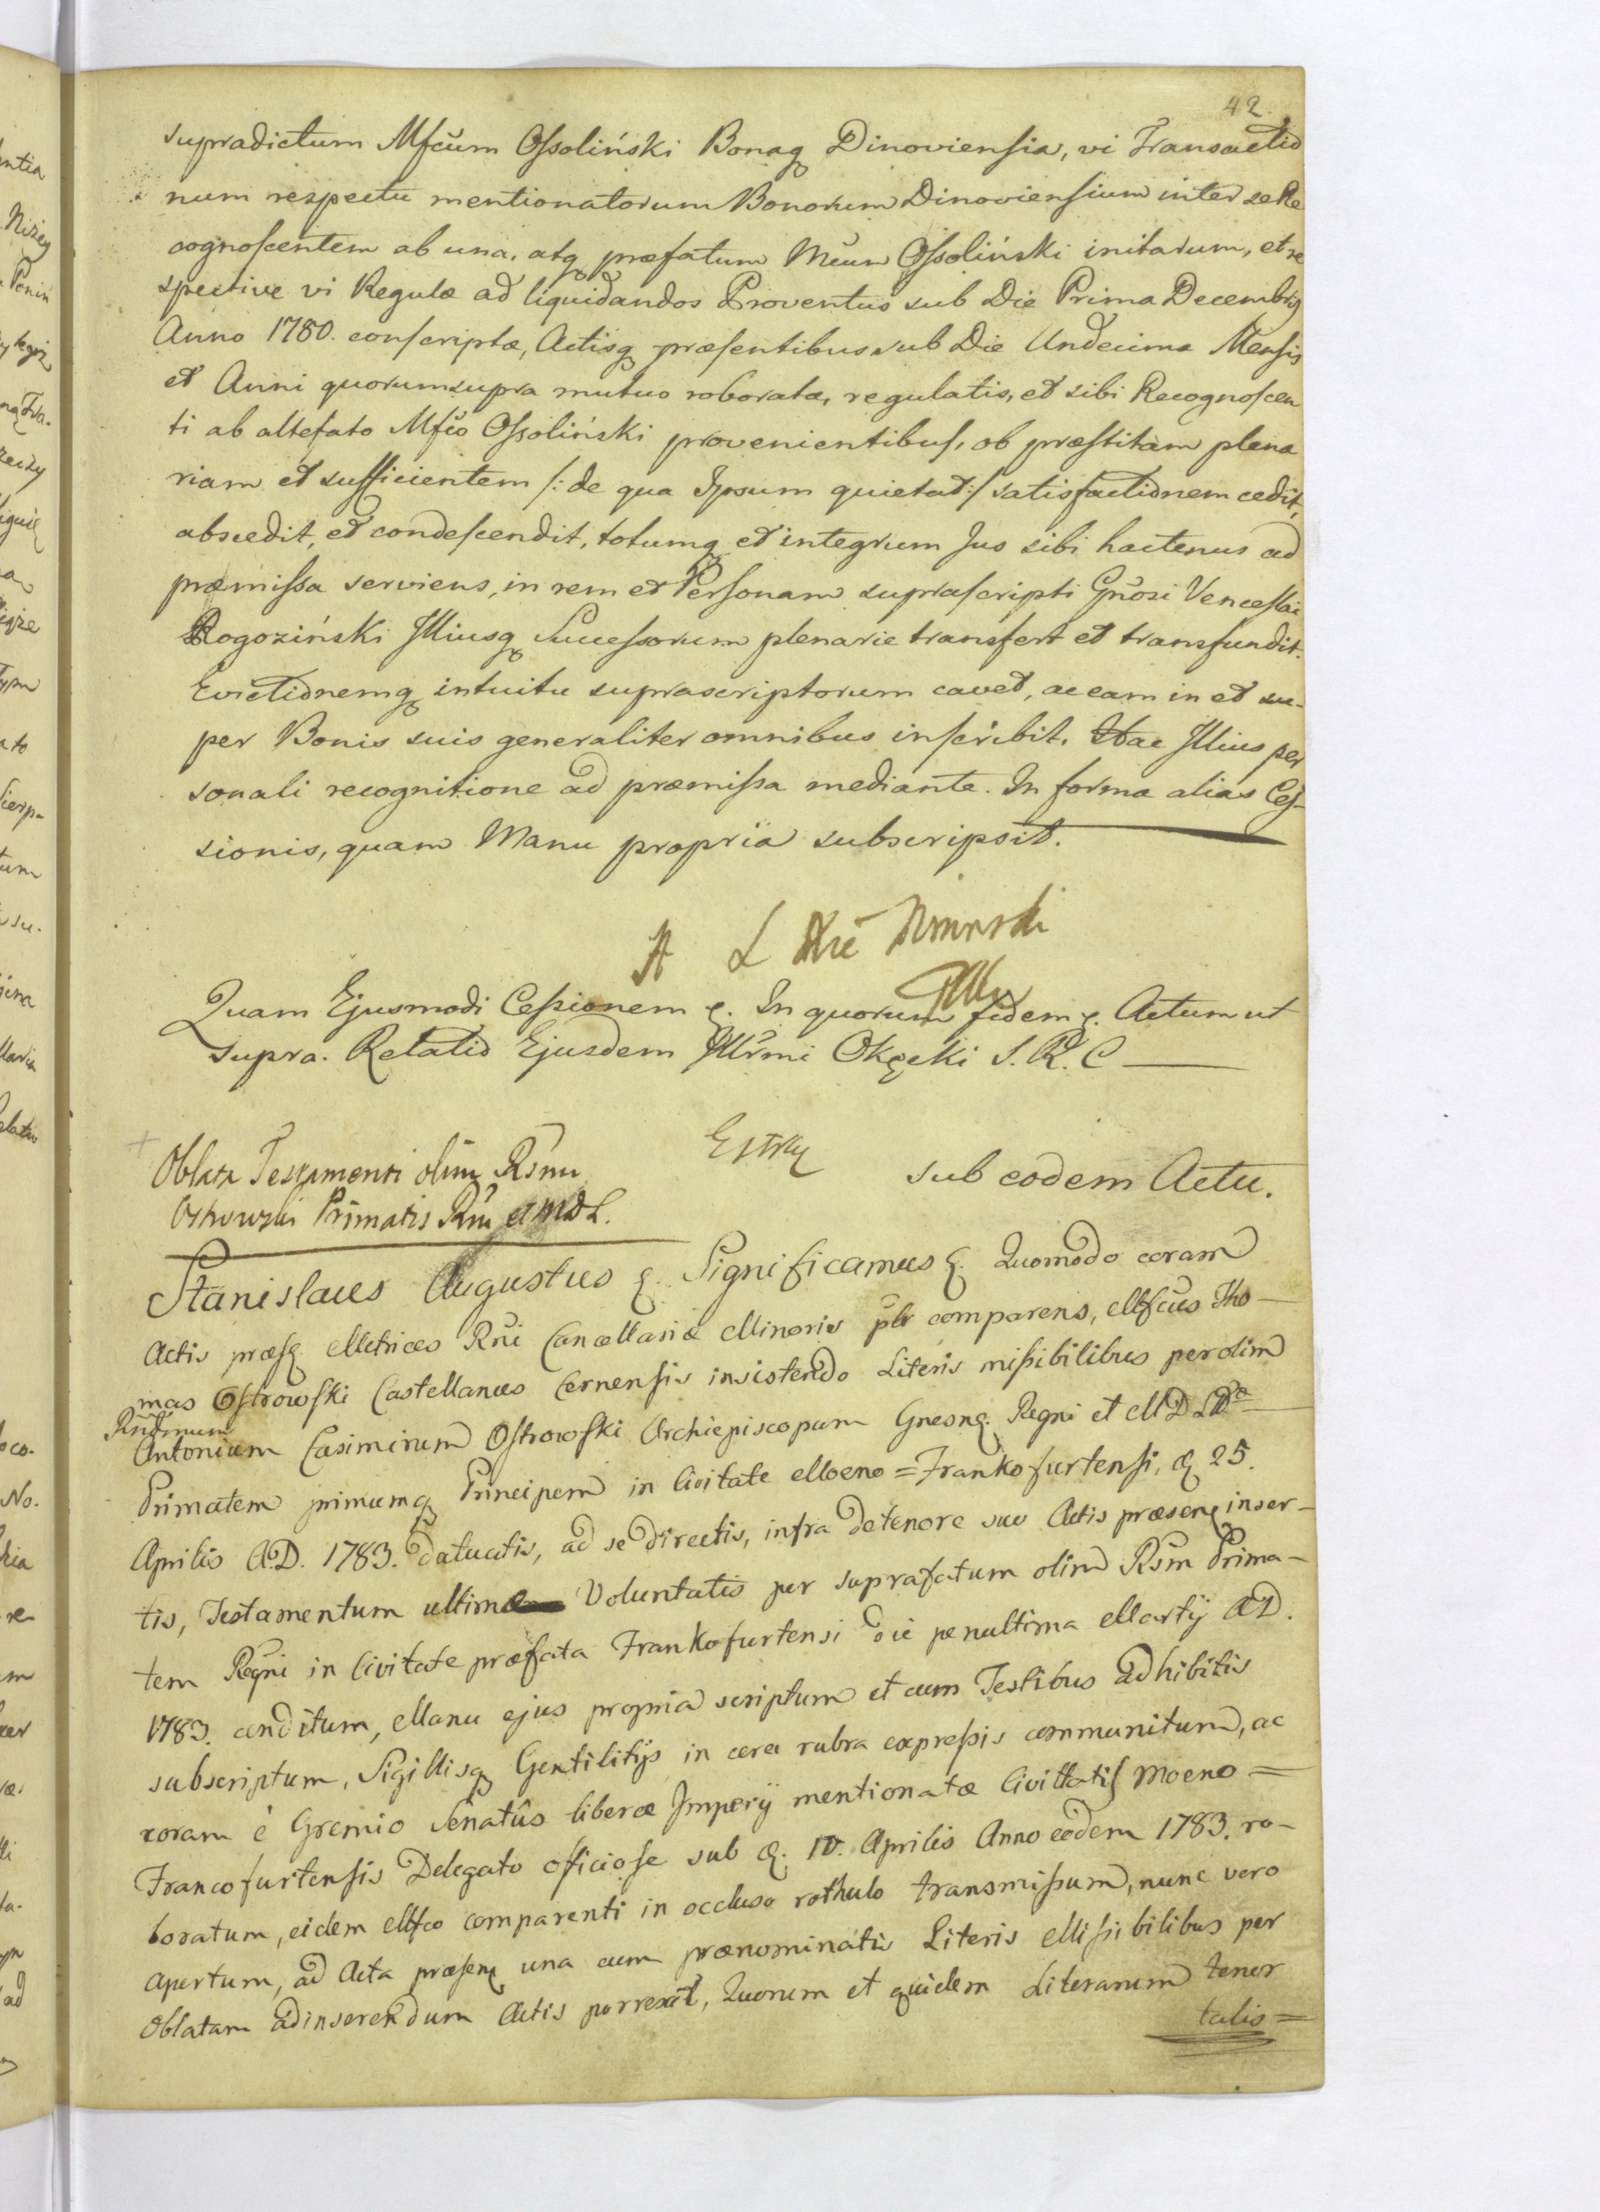 42
supradictum Mfcum Ossoliński Bonaq Dinoviensia, vi Transactio
num respectu mentionatorum Bonorum Dinoviensium inter se Re
cognoscentem ab una, atq præfatum Mcum Ossoliński initarum, et re
spective vi Regulæ ad liquidandos Proventus sub Die Prima Decembris
Anno 1780. conscriptæ, Actisq præsentibus sub Die Undecima Mensis
et Anni quorum supra mutuo roboratæ, regulatis, et sibi Recognoscen
ti ab altefato Mfco Ossoliński provenientibus, ob præstitam plena
riam et sufficientem /: de qua Ipsum quietat :/ satisfactionem cedit,
abscedit, et condescendit, totumq et integrum Jus sibi hactenus ad
præmissa serviens, in rem et Personam suprascripti Gnosi Venceslai
Rogoziński Illiusq Successorum plenarie transfert et transfundit.
Evictionemq intuitu suprascriptorum cavet, ac eam in et su-
per Bonis suis generaliter omnibus inscribit. Hac Illius per
sonali recognitione ad præmissa mediante. In forma alias Ces-
sionis, quam Manu propria subscripsit.
Quam Ejusmodi Cessionem &. In quorum fidem &. Actum ut
supra. Relatio Ejusdem Illrmi Okęcki S. R. C
Oblata Testamenti olim Rsmi
Ostrowski Primatis Rni et MDL.
Extry
sub eodem Actu.
Stanislaus Augustus &. Significamus &. Quomodo coram
Actis præsq Metrices Rni Cancellariæ Minoris plr comparens, Mfcus Tho-
mas Ostrowski Castellanus Cernensis insistendo Literis missibilibus per olim
Rndmum
Antonium Casimirum Ostrowski Archiepiscopum Gnesnq. Regni et MDL
Primatem primumq Principem in Civitate Moeno = Frankofurtensi, d. 25.
Aprilis A.D. 1783. datuatis, ad se directis, infra de tenore suo Actis præsenq inser-
tis, Testamentum ultimæ Voluntatis per suprafatum olim Rsm Prima-
tem Regni in Civitate præfata Frankofurtensi die penultima Martij A.D.
1783. conditum, Manu ejus propria scriptum et cum Testibus adhibitis
subscriptum, Sigillisq Gentilitijs in cera rubra expressis communitum, ac
coram è Gremio Senatûs liberæ Imperij mentionatæ Civittatis Moeno =
Francofurtensis Delegato officiose sub d. 10. Aprilis Anno eodem 1783. ro-
boratum, eidem Mfco comparenti in occluso rothulo transmissum, nunc vero
apertum, ad Acta præsenq una cum prænominatis Literis Missibilibus per
Oblatam ad inserendum Actis porrexit, Quorum et quidem Literarum tenor
talis =